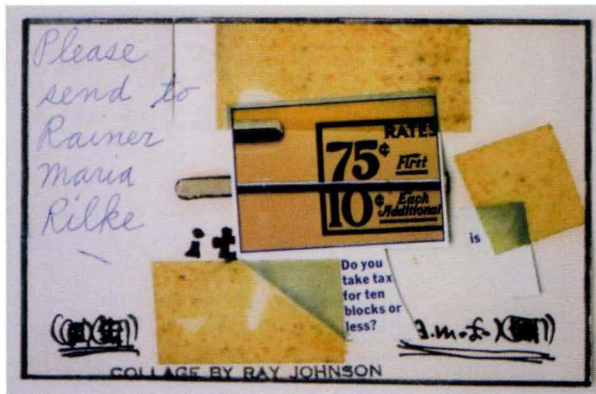 Please
send to
Rainer
Maria
Rilke
RATES
75¢ First
10¢ Each
Additional
it
is
Do you
take tax
for ten
blocks or
less?
COLLAGE BY RAY JOHNSON